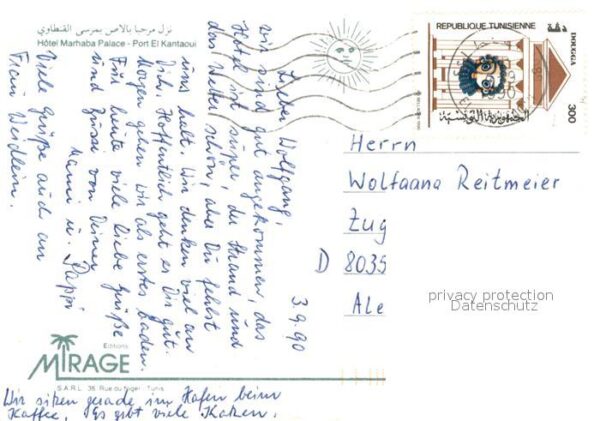 نزل مرحبا بالاص بمرسى القنطاوي
Hôtel Marhaba Palace - Port El Kantaoui
REPUBLIQUE TUNISIENNE
DOUGGA
300
الجمهورية التونسية
3.9.90
Lieber Wolfgang,
wir sind gut angekommen, das
Hotel ist super, der Strand und
das Wetter schön, aber Du fehlst
uns halt. Wir denken viel an
Dich. Hoffentlich geht es Dir gut.
Morgen gehen wir als erstes baden.
Für heute viele liebe Grüße
und Küsse von Deiner
Mami u. Pappi
Viele Grüße auch an
Frau Weidlein.
Herrn
Wolfgang Reitmeier
Zug
D 8035
Ale
privacy protection
Datenschutz
Editions
MIRAGE
S.A.R.L. 36 Rue du Niger - Tunis
Wir sitzen gerade im Hafen beim
Kaffee. Es gibt viele Katzen.